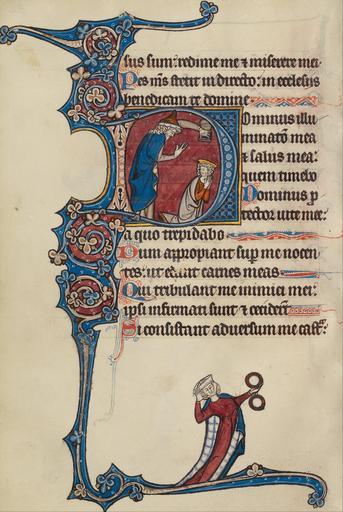 sus sum: redime me ⁊ miserere mei.
Pes mẽs stetit in directo: in ecclesiis
benedicam te domine
Dominus illu
minatõ mea
⁊ salus mea:
quem timebo
Dominus p
tector uite mee:
a quo trepidabo
Dum appropiant sup me nocen
tes: ut edant carnes meas
Qui tribulant me inimici mei:
ipsi infirmati sunt ⁊ ceciderũt
Si consistant aduersum me cast